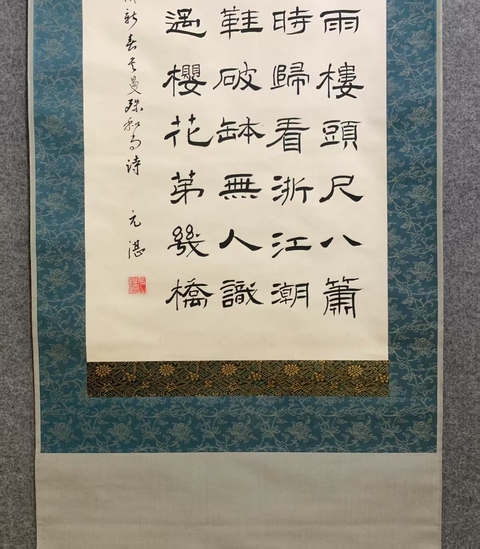 雨樓頭尺八簫
時歸看浙江潮
鞋破缽無人識
過櫻花苐幾橋
新春書曼殊和尚詩 元湛